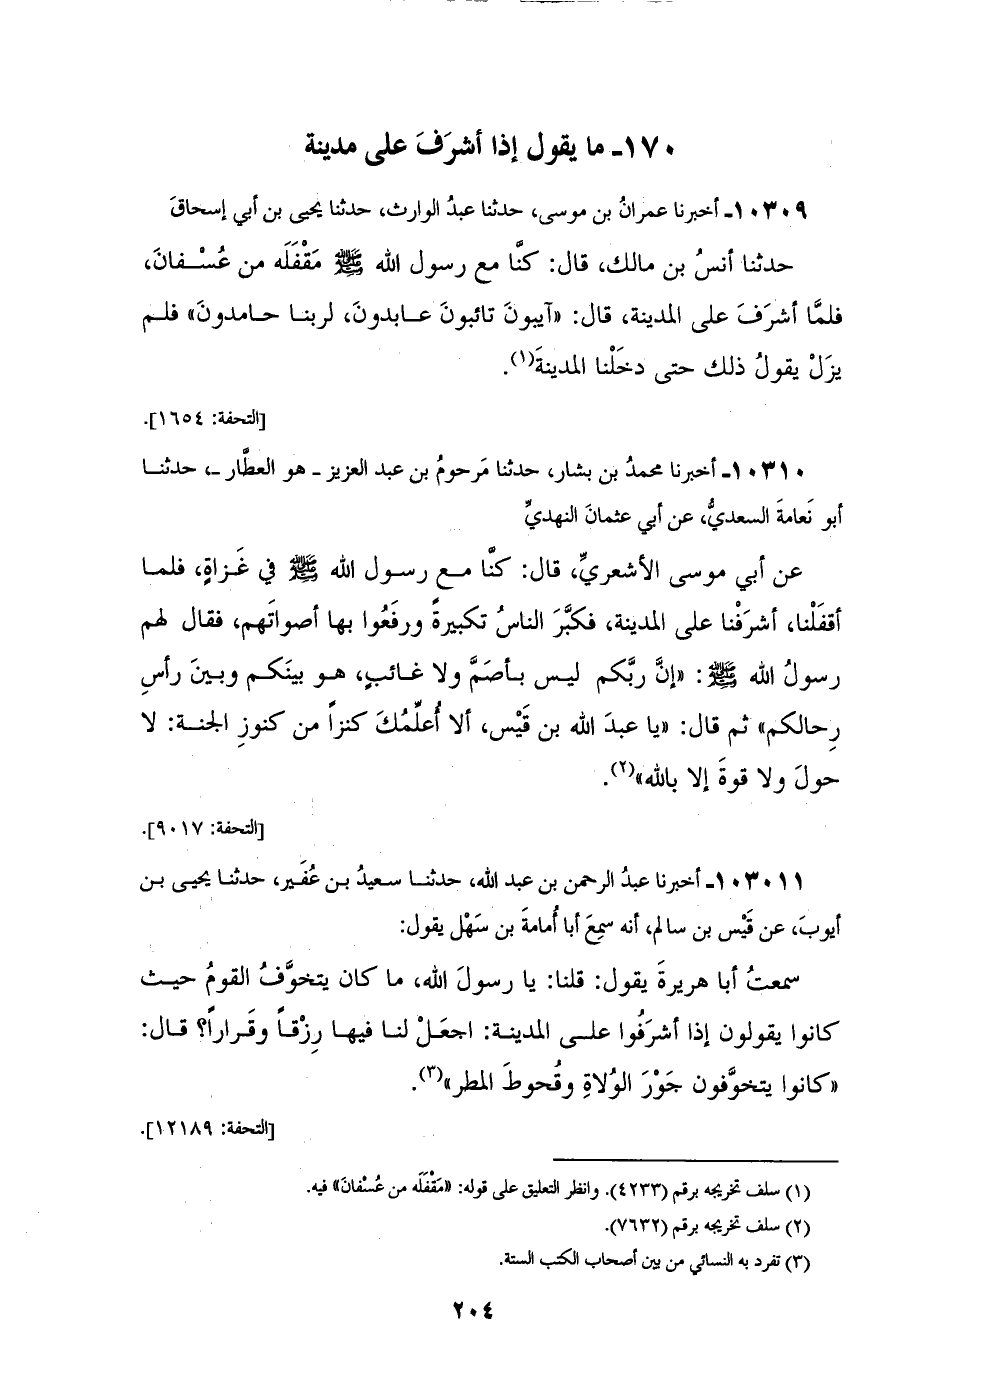 ١٧٠ـ ما يقول إذا أشرَفَ على مدينة
١٠٣٠٩ـ أخبرنا عمرانُ بن موسى، حدثنا عبدُ الوارث، حدثنا يحيى بن أبي إسحاقَ
حدثنا أنسُ بن مالك، قال: كنَّا مع رسول الله ﷺ مَقْفَلَه من عُسْـفانَ،
فلمَّا أشرَفَ على المدينة، قال: «آيبونَ تائبونَ عـابدونَ، لربنا حـامدونَ» فلـم
يزَلْ يقولُ ذلك حتى دخَلْنا المدينةَ(١).
[التحفة: ١٦٥٤].
١٠٣١٠ـ أخبرنا محمدُ بن بشار، حدثنا مَرحومُ بن عبد العزيز ـ هو العطَّار ـ، حدثنـا
أبو نَعامةَ السعديُّ، عن أبي عثمانَ النهديِّ
عن أبي موسى الأشعريِّ، قال: كنَّا مـع رسـول الله ﷺ في غَـزاةٍ، فلمـا
أقفَلْنا، أشرَفْنا على المدينة، فكبَّرَ الناسُ تكبيرةً ورفَعُوا بها أصواتَهم، فقال لهم
رسولُ الله ﷺ: «إنَّ ربَّكم ليس بـأصَمَّ ولا غـائبٍ، هـو بينَكـم وبـينَ رأسِ
رِحالكم» ثم قال: «يا عبدَ الله بن قَيْس، ألا أُعلِّمُكَ كنزاً من كنوزِ الجنـة: لا
حولَ ولا قوةَ إلا بالله»(٢).
[التحفة: ٩٠١٧].
١٠٣٠١١ـ أخبرنا عبدُ الرحمن بن عبد الله، حدثنـا سـعيدُ بـن عُفَـير، حدثنـا يحيـى بـن
أيوبَ، عن قَيْس بن سالم، أنه سمِعَ أبا أُمامةَ بن سَهْل يقول:
سمعتُ أبا هريرةَ يقول: قلنا: يا رسولَ الله، ما كان يتخوَّفُ القومُ حيـث
كانوا يقولون إذا أشرَفُوا علـى المدينـة: اجعَـلْ لنـا فيهـا رِزْقـاً وقَـراراً؟ قـال:
«كانوا يتخوَّفون جَوْرَ الوُلاةِ وقُحوطَ المطر»(٣).
[التحفة: ١٢١٨٩].
(١) سلف تخريجه برقم (٤٢٣٣). وانظر التعليق على قوله: «مَقْفَلَه من عُسْفانَ» فيه.
(٢) سلف تخريجه برقم (٧٦٣٢).
(٣) تفرد به النسائي من بين أصحاب الكتب الستة.
٢٠٤